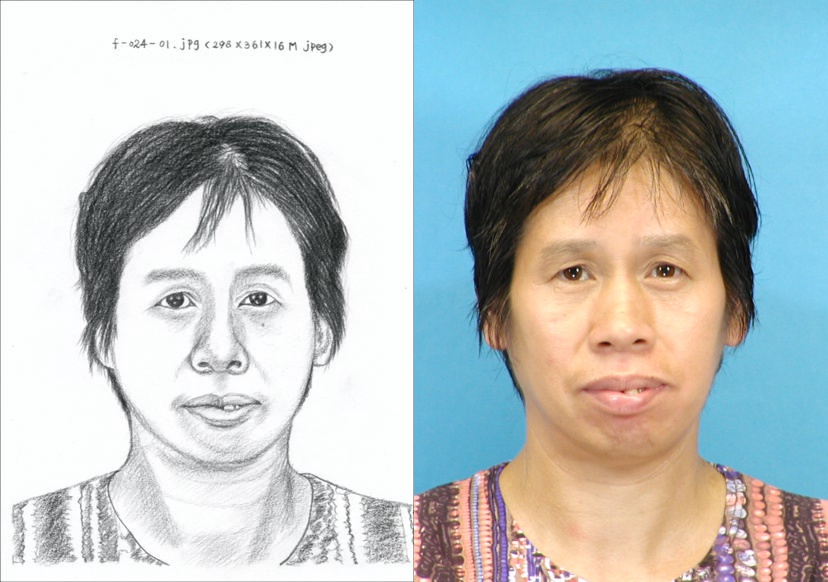 f-024-01.jpg (298X361X16M jpeg)